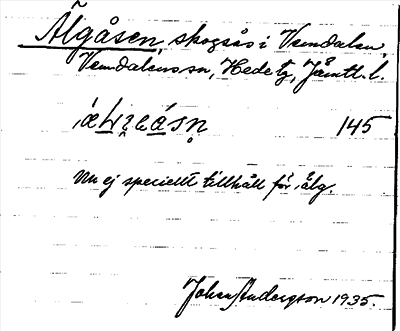 Älgåsen, skogsås i Vemdalen,
Vemdalens sn, Hede tg, Jämtl. l.
145
Nu ej speciellt tillhåll för älg.
Johan Andersson 1935.